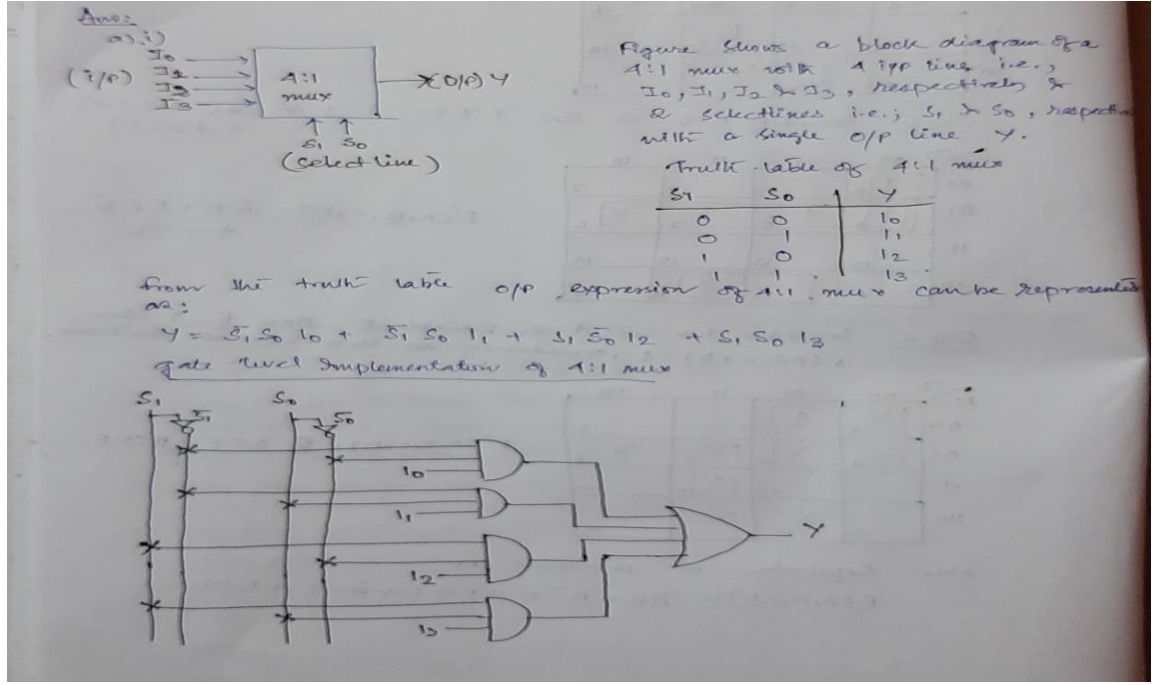 Ans:
a) i)
I0
(i/p) I1
I2
I3
4:1
mux
(O/P) Y
S1 S0
(select line)
Figure shows a block diagram of a
4:1 mux with 4 i/p line i.e.,
I0, I1, I2 & I3, respectively &
2 selectlines i.e.; S1 & S0, respectiv
with a single o/p line Y.
Truth table of 4:1 mux
S1 S0 Y
0 0 I0
0 1 I1
1 0 I2
1 1 I3
from the truth table o/p expression of 4:1 mux can be represented
as:
Y = S̄1 S0 I0 + S̄1 S0 I1 + S1 S̄0 I2 + S1 S0 I3
gate level Implementation of 4:1 mux
S1 S̄1 S0 S̄0
I0
I1
Y
I2
I3